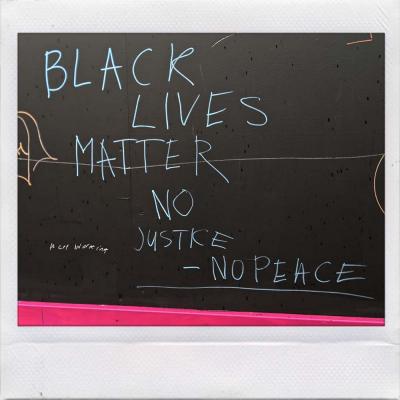 BLACK
LIVES
MATTER
NO
JUSTICE
- NO PEACE